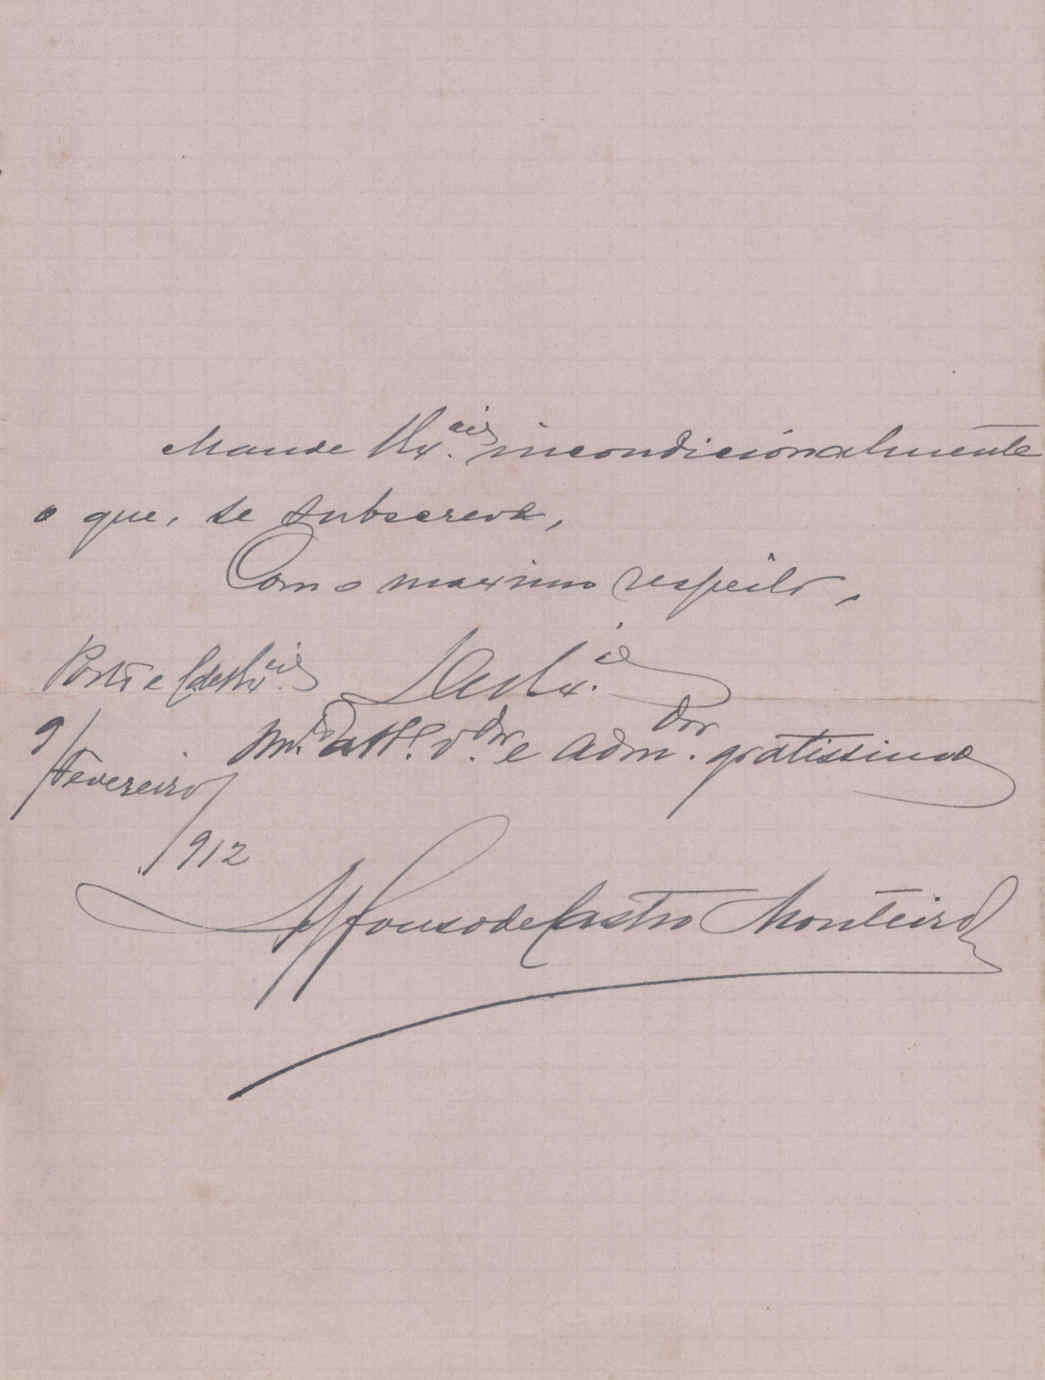 Mande V. Ex.cia incondicionalmente
o que, se subscreve,
Com o maximo respeito,
Porto e
De V. Ex.cia
9/Fevereiro/912
m.to att.o v.dor e adm.dor gratissimo
Affonso de Castro Monteiro